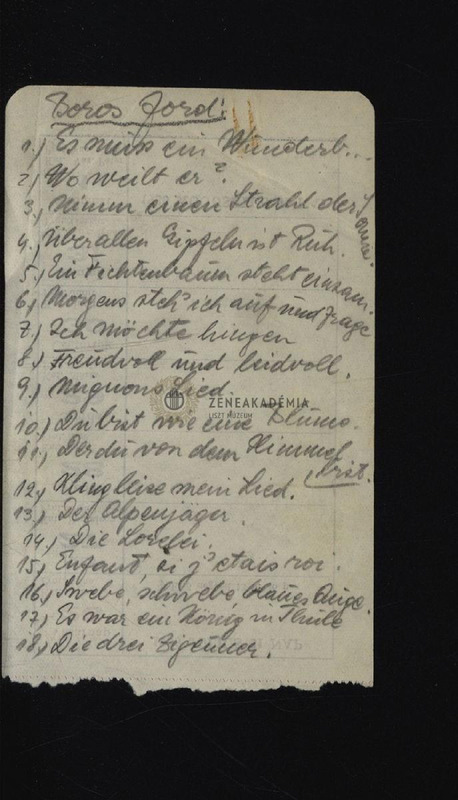 Boros Jordi:
1.) Es muss ein Wunderb...
2.) Wo weilt er?
3.) Nimm einen Strahl der Sonne.
4.) Über allen Gipfeln ist Ruh.
5.) Ein Fichtenbaum steht einsam.
6.) Morgens steh' ich auf und frage
7.) Ich möchte hingen
8.) Freudvoll und leidvoll.
9.) Mignons Lied.
ZENEAKADÉMIA
LISZT MÚZEUM
10.) Du bist wie eine Blume.
11.) Der du von dem Himmel
bist.
12.) Kling leise mein Lied.
13.) Der Alpenjäger.
14.) Die Lorelei.
15.) Enfant, si j'etais roi.
16.) Swebe, schwebe blaues Auge.
17.) Es war ein König in Thule
18.) Die drei Zigeuner.